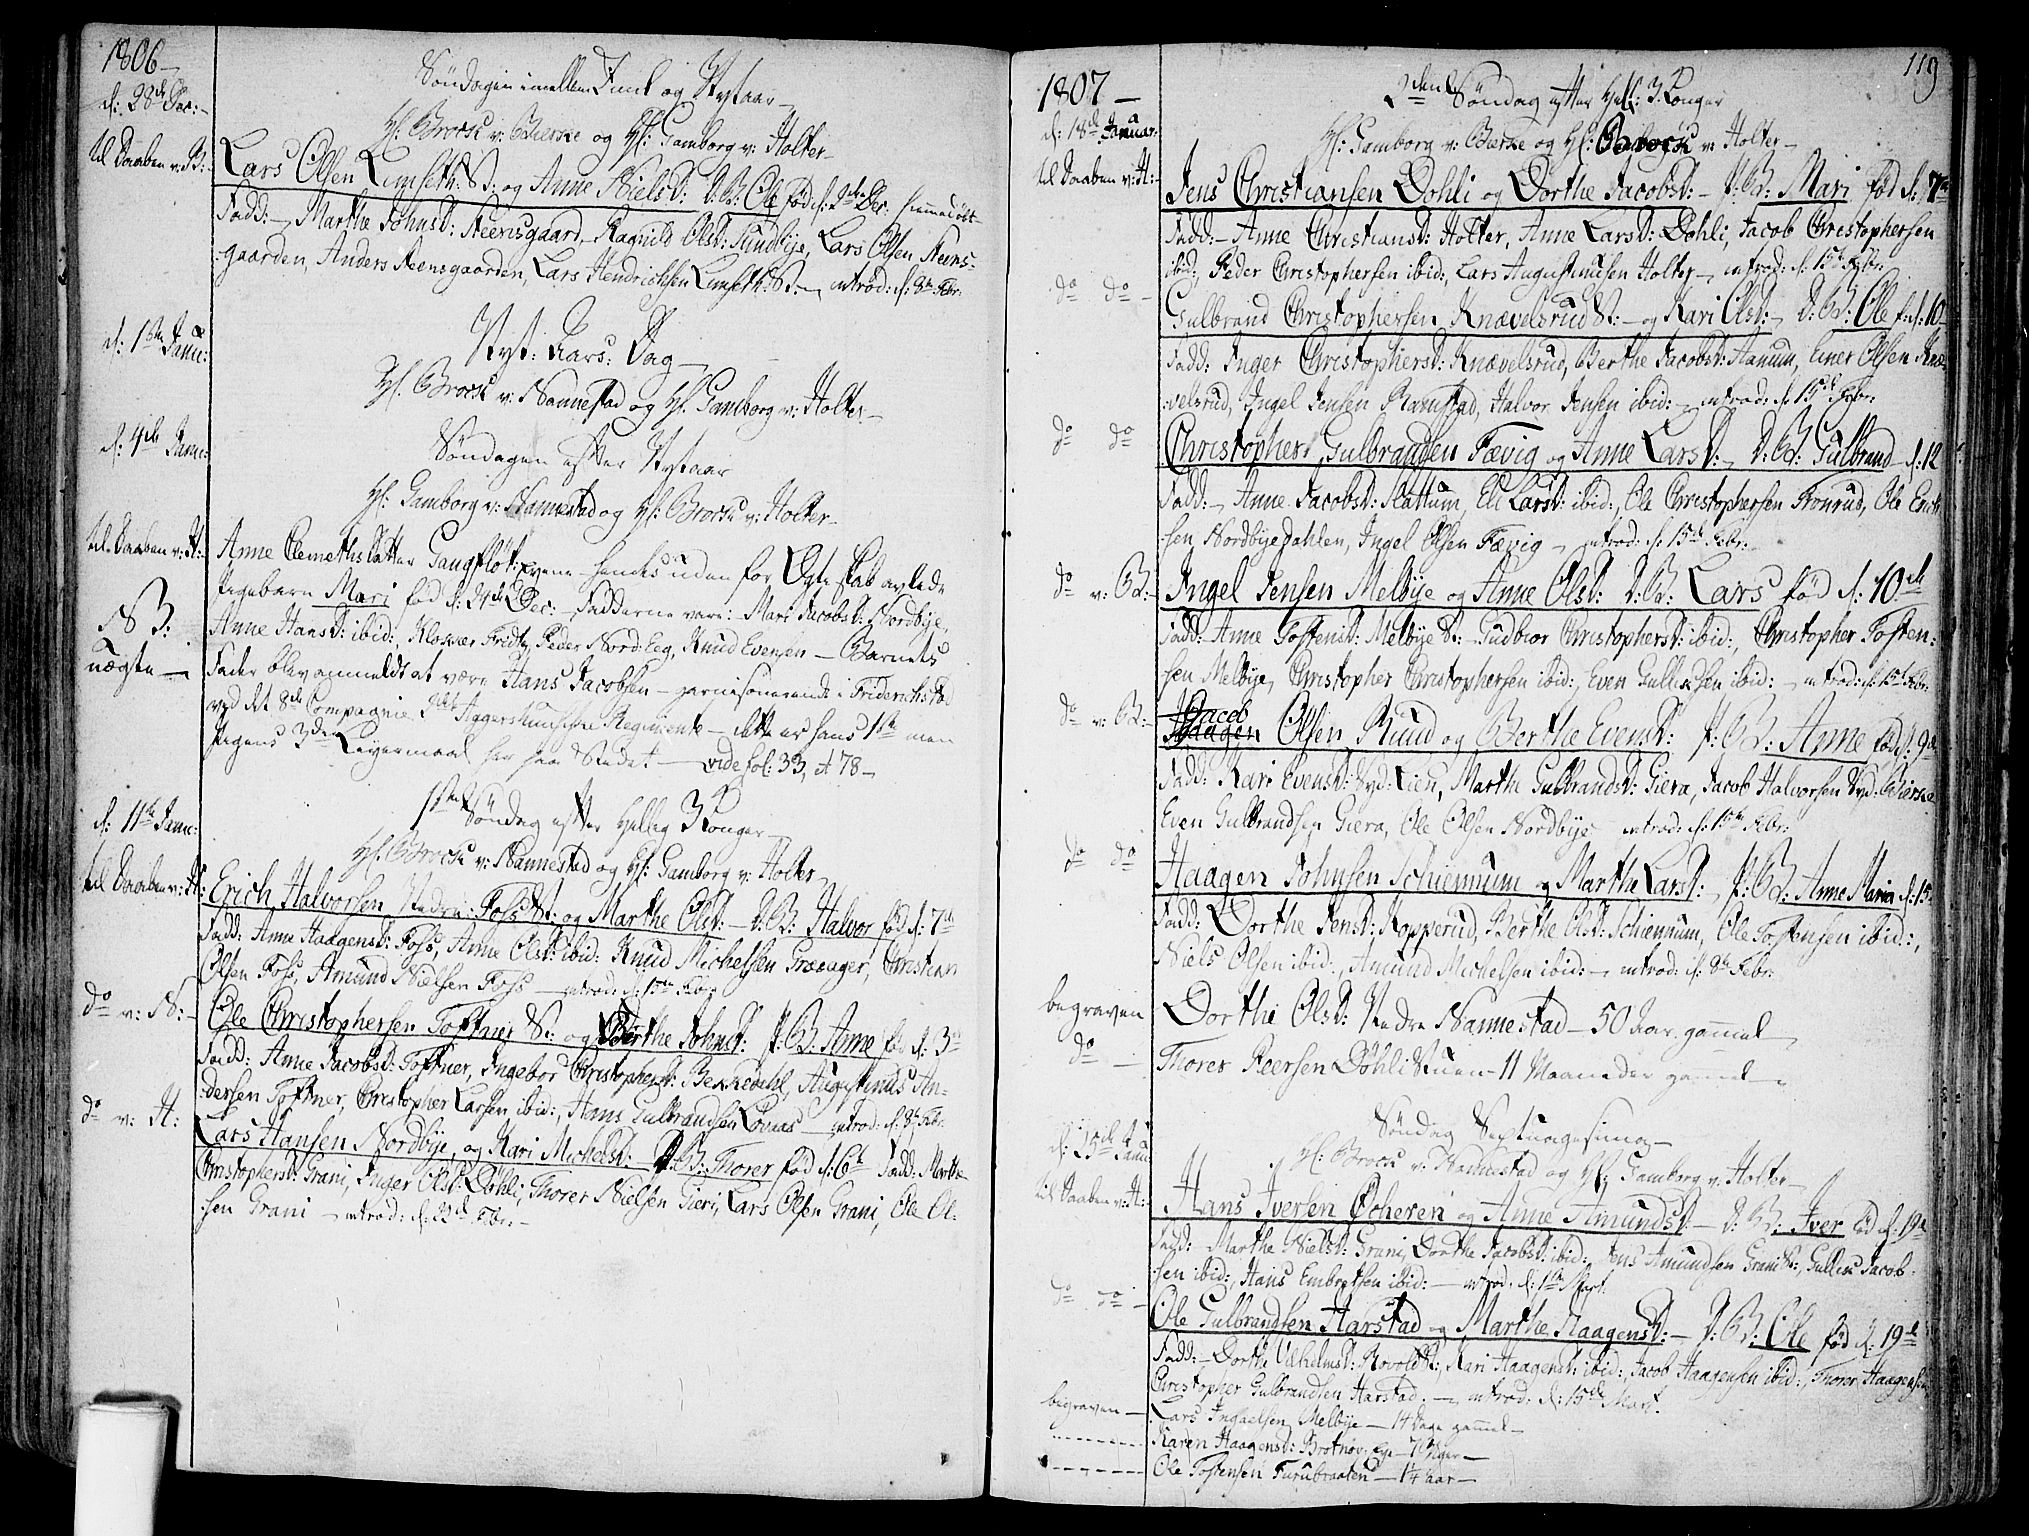 1806
d: 28de Dec:
Søndagen imellem Juul og Nytaar
Hr: Brock v: Bierke og Hr: Gamborg v: Holter
til Daaben v: B:
Lars Olsen Limseth: S: og Anne Nielsd: D: B: Ole fød d: 2den Dec: hiemmedøbt
Fadd: Marthe Johnsd: Reensgaard, Ragnild Olsd: Sundbye, Lars Olsen Reens-
gaarden, Anders Reensgaarden, Lars Hendrichsen Limseth: S: introd: d: 8de Febr:
d: 1ste Janu:
Nyt: Aars: Dag
Hr: Brock v: Nannestad og Hr: Gamborg v: Holter
d: 4de Janu:
Søndagen efter Nytaar
Hr: Gamborg v: Nannestad og Hr: Brock v: Holter
til Daaben v: H:
Anne ClemethsDatter Gaugfløt: Evene hendes uden for Ægteskab avlede
Pigebarn Mari fød d: 21de Dec: Fadderne vare: Mari Jacobsd: Nordbye,
NB:
Anne Hansd: ibid:, Klokker Fridtz, Peder Nord: Eeg, Knud Evensen — Barnets
nægte
Fader blev anmeldt at være Hans Jacobsen — garnisonerende i Friderichstad
ved det 8de Compagnie 2det Aggershuusiske Regimente — dette er hans 1ste men
Pigens 3die Leyermaal her paa Stedet — vide fol: 33, et 78
d: 11te Janu:
1ste Søndag efter Hellig 3 Konger
Hr: Brock v: Nannestad og Hr: Gamborg v: Holter
til Daaben v: H:
Erich Halvorsen Nedre Foss S: og Marthe Olsd: D: B: Halvor fød d: 7de
Fadd: Anne Haagensd: Foss, Anne Olsd: ibid: Knud Michelsen Græsager, Christian
Olsen Foss, Amund Nielsen Foss — introd: d: 15de Febr:
do v: N:
Ole Christophersen Toftner S: og Berthe Johnsd: P: B: Anne fød d: 3de
Fadd: Anne Jacobsd: Toftner, Ingebor Christophersd: Berkedahl, Augustinus An-
dersen Toftner, Christopher Larsen ibid:, Hans Gulbrandsen Lønaas — introd: d: 8de Febr:
do v: H:
Lars Hansen Nordbye, og Kari Michelsd: D: B: Thorer fød d: 6te Fadd: Marthe
Christophersd: Grani, Inger Olsd: Døhli, Thorer Nielsen Gieri, Lars Olsen Grani, Ole Ol-
sen Grani — introd: d: 22de Febr:
119
1807
d: 18de Januar:
2den Søndag efter Hell: 3 Konger
Hr: Gamborg v: Bierke og Hr: Brock v: Holter
til Daaben v: H:
Jens Christiansen Døhli og Dorthe Jacobsd: P: B: Mari fød d: 7de
Fadd: Anne Christiansd: Holter, Anne Larsd: Døhli, Jacob Christophersen
ibid:, Peder Christophersen ibid:, Lars Augustinusen Holter — introd: d: 15de Febr:
do do
Gulbrand Christophersen Knævelsrud S: og Kari Olsd: D: B: Ole f: d: 10
Fadd: Inger Christophersd: Knævelsrud, Berthe Jacobsd: Hanum, Einer Olsen Knæ-
velsrud, Ingel Jensen Ramstad, Halvor Jensen ibid: introd: d: 15de Febr:
do do
Christopher Gulbrandsen Fævig og Anne Larsd: D: B: Gulbrand d: 12
Fadd: Anne Jacobsd: Slattum, Eli Larsd: ibid:, Ole Christophersen Kronrud, Ole Erich-
sen Nordbyedahlen, Ingel Olsen Fævig — introd: d: 15de Febr:
do v: B:
Ingel Jensen Melbye og Anne Olsd: D: B: Lars fød d: 10de
Fadd: Anne Tostensd: Melbye S: Gudbior Christophersd: ibid:, Christopher Tosten-
sen Melbye, Christopher Christophersen ibid:, Even Gullichsen ibid: introd: d: 15de Febr:
do v: B:
Jacob
Haagen Olsen Ruud og Berthe Evensd: P: B: Anne fød d: 9de
Fadd: Kari Evensd: Syd: Lien, Marthe Gulbrandsd: Giera, Jacob Halvorsen Syd: Bierke
Even Gulbrandsen Giera, Ole Olsen Nordbye introd: d: 15de Febr:
do do
Haagen Johnsen Schiennum og Marthe Larsd: P: B: Anne Maria d: 15
Fadd: Dorthe Jensd: Kopperud, Berthe Olsd: Schiennum, Ole Tostensen ibid:,
Niels Olsen ibid:, Amund Michelsen ibid: introd: d: 8de Febr:
begraven
Dorthe Olsd: Nedre Nannestad — 50 Aar gammel
do
Thorer Peersen DøhliStuen — 11 Maaneder gammel
d: 25de Janu:
Søndag Septuagesima
Hr: Brock v: Nannestad og Hr: Gamborg v: Holter
til Daaben v: H:
Hans Iversen Ocheren og Anne Amundsd: D: B: Iver fød d: 19de
Fadd: Marthe Nielsd: Grani, Dorthe Jacobsd: ibid:, Jens Amundsen Grani S:, Gullich Jacob-
sen ibid:, Hans Embretsen ibid: introd: d: 1ste Mart:
do do
Ole Gulbrandsen Harstad og Marthe Haagensd: D: B: Ole fød d: 19de
Fadd: Dorthe Vilhelmsd: Rovold S:, Kari Haagensd: ibid:, Jacob Haagensen ibid:, Thorer Haagensen
Christopher Gulbrandsen Harstad, introd: d: 15de Mart.
begraven
Lars Ingaelsen Melbye — 14 Dage gammel
Karen Haagensd: Brotnov: Eye — 7 Uger
Ole Tostensen Furubraaten — 1¼ aar